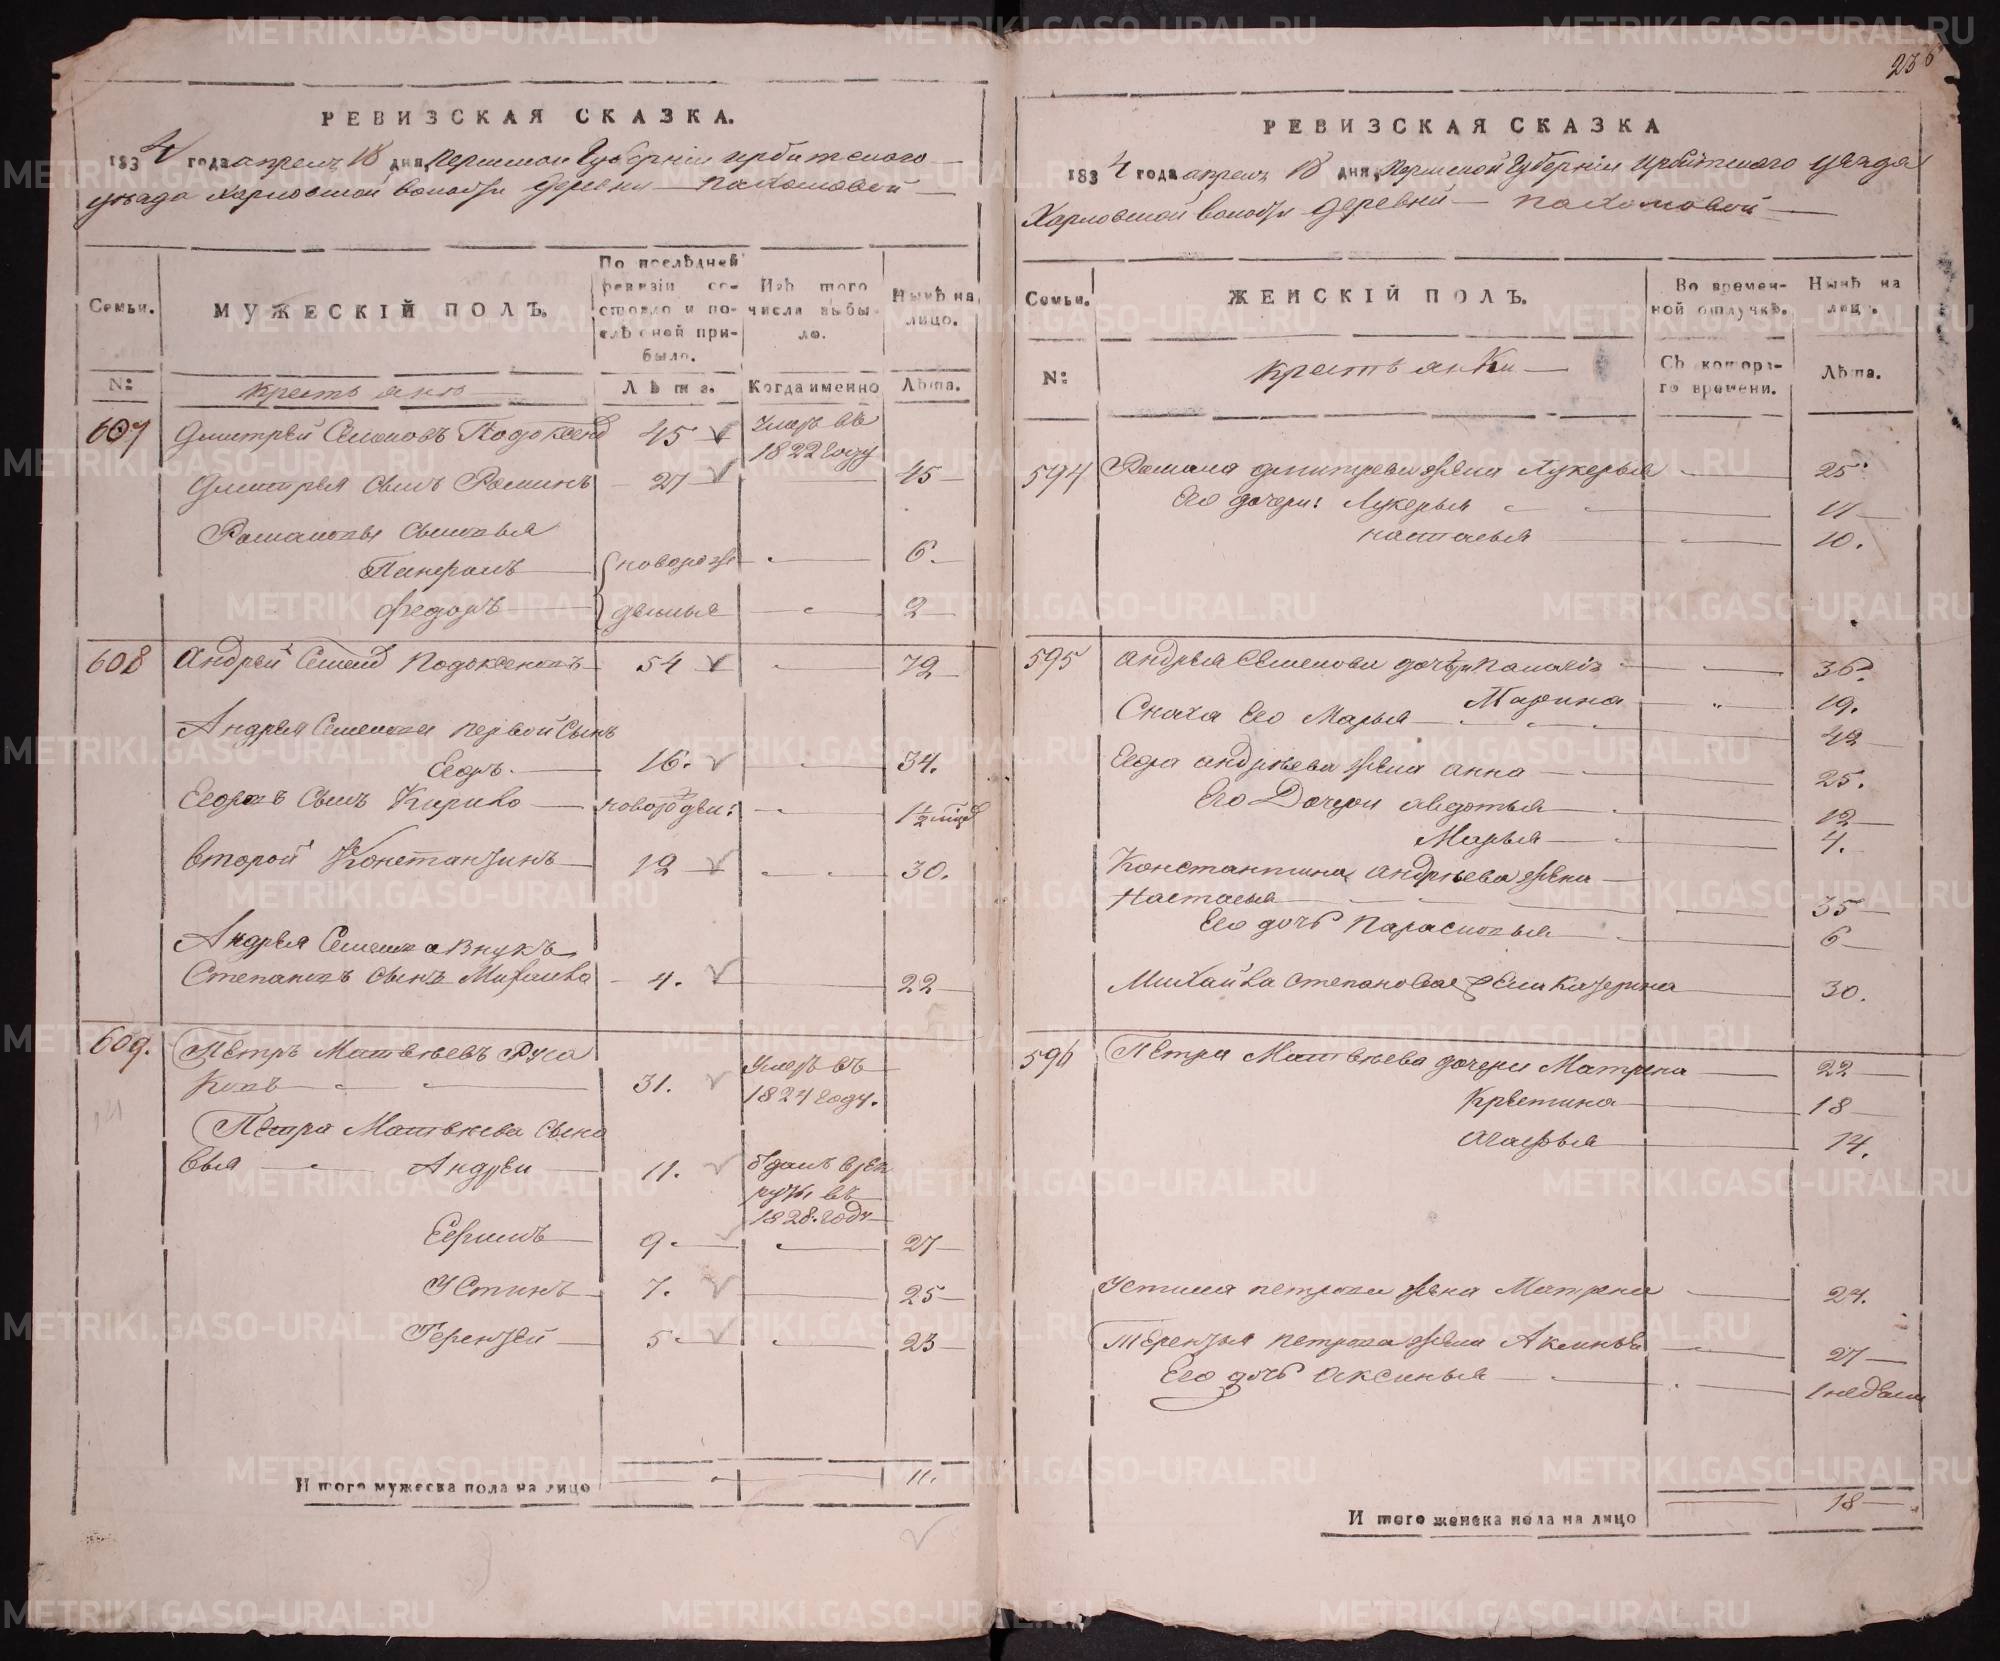 236
РЕВИЗСКАЯ СКАЗКА.
1834 года апреля 18 дня, Пермской Губернiи Ирбитского
уезда Харловской волости Деревни Пахомовой
Семьи.
МУЖЕСКІЙ ПОЛЪ.
По послѣдней ревизіи состояло и послѣ сней прибыло.
Изъ того числа выбыло.
Нынѣ на лицо.
№:
крестьяне
Лѣта.
Когда именно
Лѣта.
607 Дмитрей Семеновъ Подоксенов 45 Умеръ въ
1822 году
Дмитрея сынъ Романъ 27 45
Романовы сыновья
Панкрат новорож 6.
Федоръ денныя 2
608 Андрей Семенов Подоксеновъ 54 72
Андрея Семенова первой сынъ
Егоръ 16. 34.
Егоровъ сынъ Кирило новорожден: 1/2 мѣсяц
второй Константинъ 12 30.
Андрея Семенова внукъ
Степановъ сынъ Михаило 4. 22
609. Петръ Матвѣевъ Руса
ковъ 31. Умеръ въ
1824 году.
Петра Матвѣева сыно
вья Андреи 11. отдан врек
руты въ
1828. году
Ефимъ 9. 27
Устинъ 7. 25
Терентей 5 23
Итого мужеска пола на лицо 11.
РЕВИЗСКАЯ СКАЗКА
1834 года апреля 18 дня, Пермской Губернiи Ирбитского уезда
Харловской волости Деревни Пахомовой
Семьи.
ЖЕНСКІЙ ПОЛЪ.
Во временной отлучкѣ.
Нынѣ на лицо.
№:
крестьянки
Съ которого времени.
Лѣта.
594 Романа Дмитрева жена Лукерья 25
Его дочери: Лукерья 11
настасья 10.
595 Андрея Семенова дочери 36.
Марина 19.
Сноха его Марья 42
Егора андрѣева жена анна 25.
Его Дочери авдотья 12
Марья 4.
Константина андрѣева жена
Настасья 35
Его дочь Парасковья 6
Михаила степанова жена катерина 30.
596 Петра Матвѣева дочери Матрена 22
Крестина 18
агафья 14.
Устина петрова жена Матрена 24.
Терентья петрова жена Аксинья 27
Его дочь аксинья 1 недели
Итого женска пола на лицо 18
METRIKI.GASO-URAL.RU